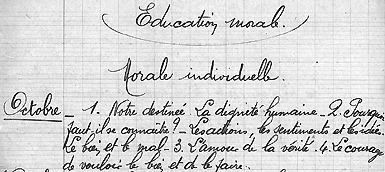 Education morale.
Morale individuelle.
Octobre _ 1. Notre destinée La dignité humaine _ 2. Pourquoi
faut-il se connaître ? _ Les actions, les sentiments et les idées.
Le bien et le mal _ 3. L'amour de la vérité. 4. Le courage
de vouloir le bien et de le faire.